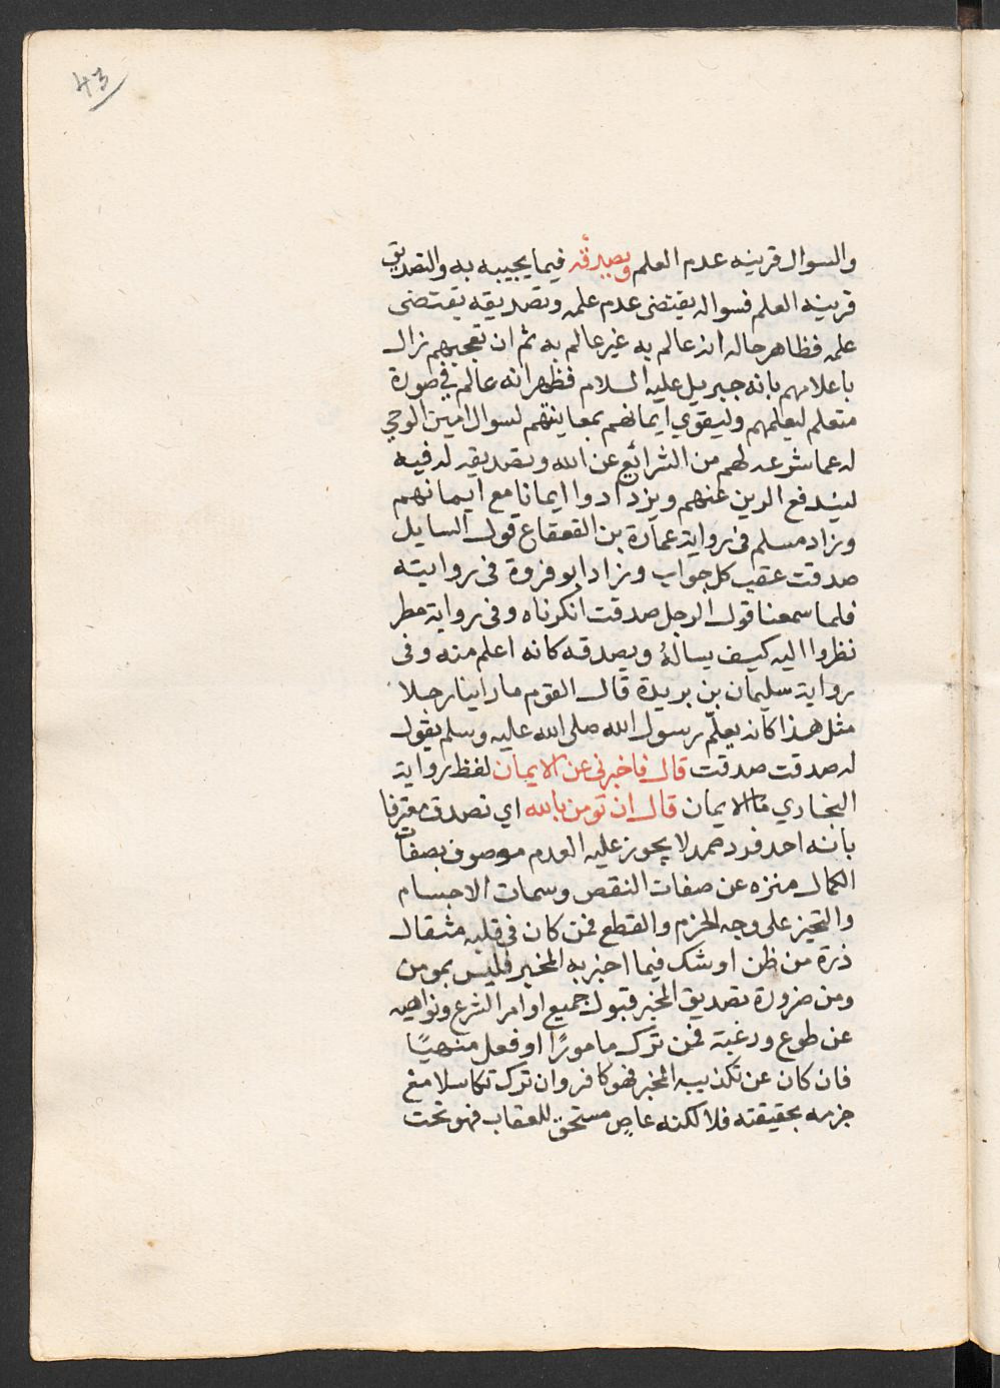 43
والسوال قرينه عدم العلم ويصدقه فيما يجيبه به والتصديق
قرينه العلم فسواله يقتضى عدم علمه وتصديقه يقتضى
علمه فظاهر حاله انه عالم به غير عالم به ثم ان تعجبهم زال
باعلامهم بانه جبريل عليه السلام فظهر انه عالم في صورة
متعلم ليعلمهم وليقوي ايمانهم بمعاينتهم لسوال امين الوحي
له عما شرعه لهم من الشرائع عن الله وتصديقه له فيه
ليندفع الرين عنهم ويزدادوا ايمانا مع ايمانهم
وزاد مسلم فى رواية عمارة بن القعقاع قول السايل
صدقت عقب كل جواب وزاد ابو فروة فى روايته
فلما سمعنا قول الرجل صدقت انكرناه وفى رواية مطر
نظروا اليه كيف يسالهُ ويصدقه كانه اعلم منه وفى
رواية سليمان بن بريدة قال القوم ما راينا رجلا
مثل هذا كانه يعلّم رسول الله صلى الله عليه وسلم يقول
له صدقت صدقت قال فاخبرنى عن الايمان لفظ رواية
البخاري ما الايمان قال ان تومن بالله اي تصدق معترفا
بانه احد فرد صمد لا يجوز عليه العدم موصوف بصفات
الكمال منزه عن صفات النقص وسمات الاجسام
والتحيز على وجه الجزم والقطع فمن كان فى قلبه مثقال
ذرة من ظن او شك فيما اخبر به المخبر فليس بمومن
ومن ضرورة تصديق المخبر قبول جميع اوامر الشرع ونواهيه
عن طوع ورغبة فمن ترك مامورًا او فعل منهيًا
فان كان عن تكذيبه المخبر فهو كافر وان ترك تكاسلا مع
جزمه بحقيقته فلا لكنه عاصٍ مستحق للعقاب فهو تحت